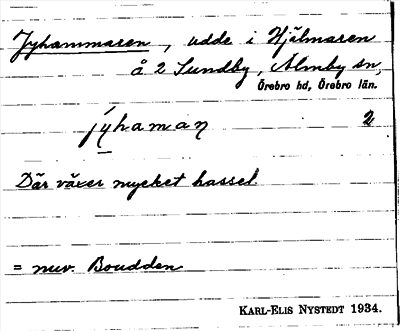 Jyhammaren, udde i Hjälmaren
å 2 Sundby, Almby sn,
Örebro hd, Örebro län.
jyhaman 2
Där växer mycket hassel
= nuv. Boudden
KARL-ELIS NYSTEDT 1934.